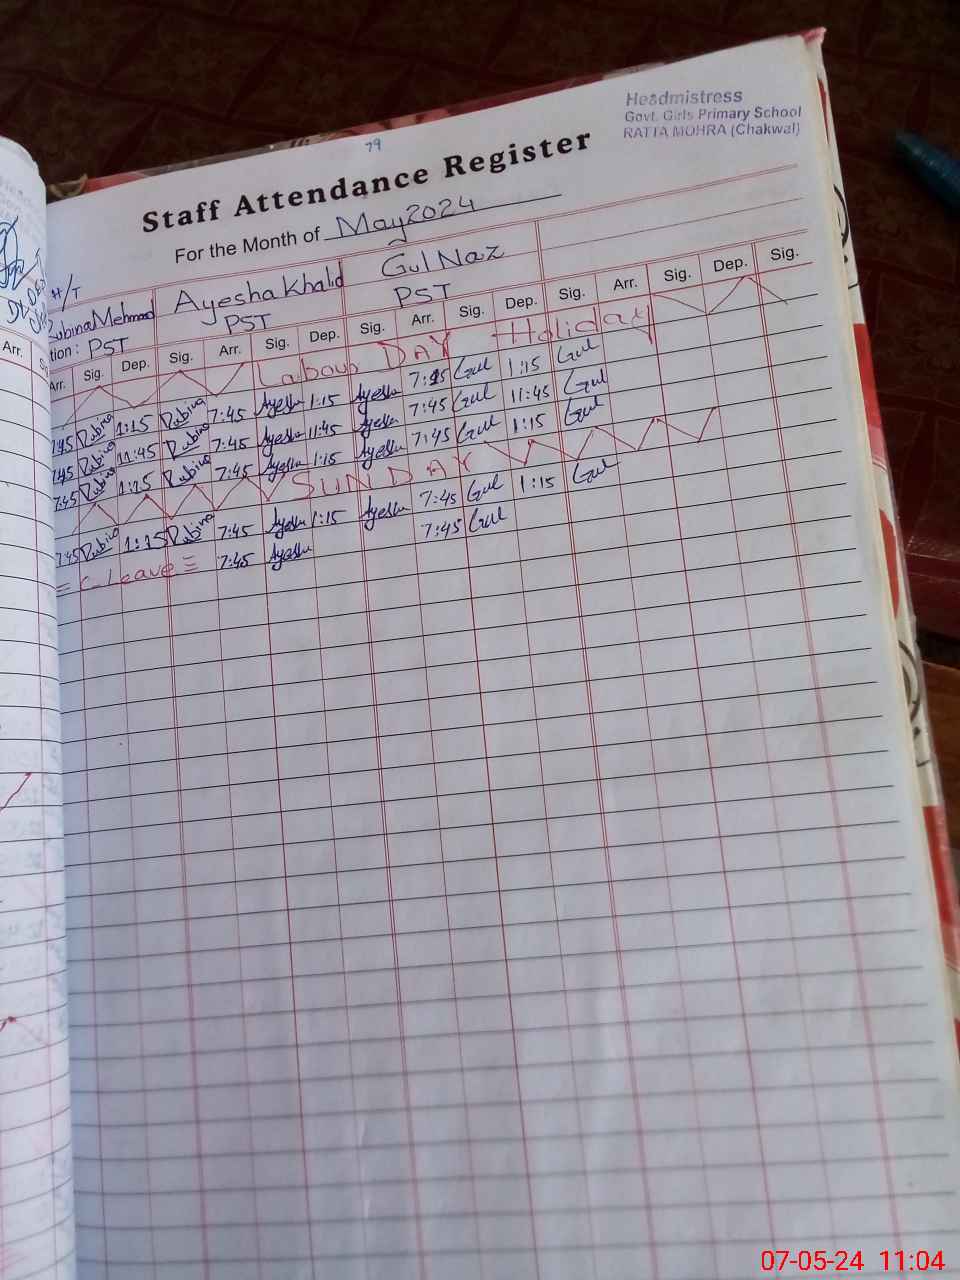 79
Headmistress
Govt. Girls Primary School
RATTA MOHRA (Chakwal)
Staff Attendance Register
For the Month of May 2024
H/T
Rubina Mehmood Ayesha Khalid Gul Naz
tion: PST PST PST
Arr. Arr. Sig. Dep. Sig. Arr. Sig. Dep. Sig. Arr. Sig. Dep. Sig. Arr. Sig. Dep. Sig.
Labour DAY Holiday
7:45 Rubina 1:15 Rubina 7:45 Ayesha 1:15 Ayesha 7:45 Gul 1:15 Gul
7:45 Rubina 11:45 Rubina 7:45 Ayesha 11:45 Ayesha 7:45 Gul 11:45 Gul
7:45 Rubina 1:15 Rubina 7:45 Ayesha 1:15 Ayesha 7:45 Gul 1:15 Gul
SUNDAY
7:45 Rubina 1:15 Rubina 7:45 Ayesha 1:15 Ayesha 7:45 Gul 1:15 Gul
= C. leave = 7:45 Ayesha 7:45 Gul
07-05-24 11:04